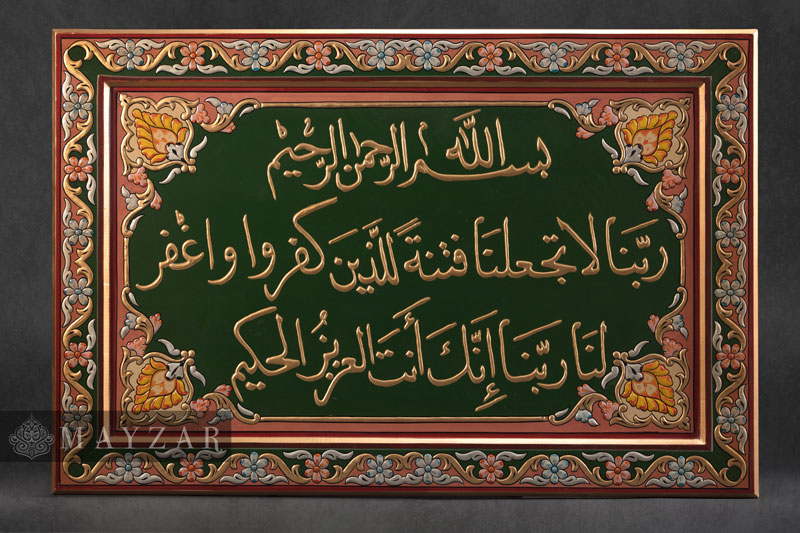 بسم الله الرحمن الرحيم
ربنا لا تجعلنا فتنة للذين كفروا واغفر
لنا ربنا إنك أنت العزيز الحكيم
MAYZAR